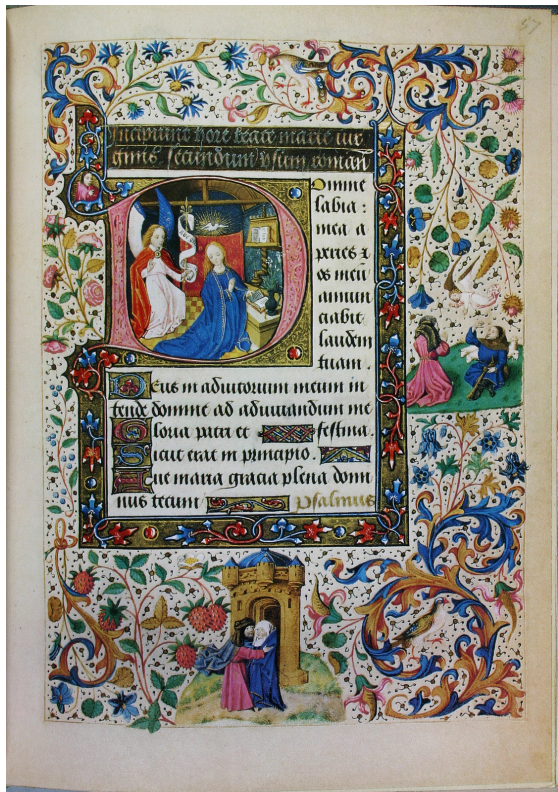 57
Incipiunt hore beate marie vir
ginis secundum vsum roman
Domine
labia :
mea a
peries et
os meu
annun
ciabit
laudem
tuam .
Deus in adiutorium meum in
tende domine ad adiuuandum me
festina .
Gloria patri et
Sicut erat in principio .
Aue maria gracia plena domi
nus tecum
psalmus